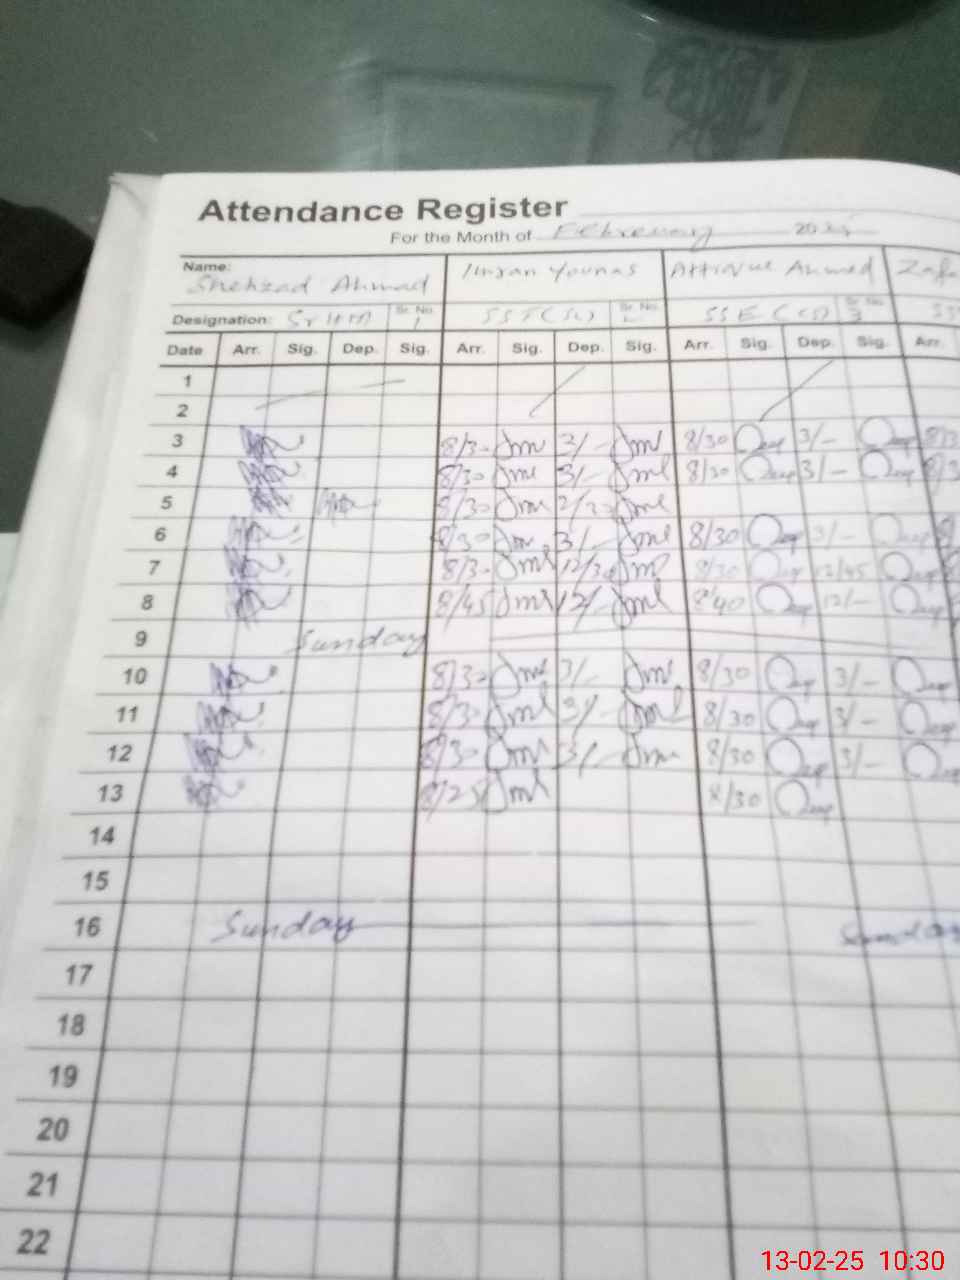 Attendance Register
For the Month of February 20
Name: Shehzad Ahmad Imran Younas Attique Ahmed Zafa
Designation: Sr. No. 1 SST (Sc) Sr. No. SSE (CS) Sr. No. 3
Date Arr. Sig. Dep. Sig. Arr. Sig. Dep. Sig. Arr. Sig. Dep. Sig. Arr.
1
2
3 8/30 3/- 8/30 3/-
4 8/30 3/- 8/30 3/-
5 8/30 2/30
6 8/30 3/- 8/30 3/-
7 8/30 12/30 8/30 12/45
8 8/45 12/- 8/40 12/-
9 Sunday
10 8/30 3/- 8/30 3/-
11 8/30 3/- 8/30 3/-
12 8/30 3/- 8/30 3/-
13 8/25 8/30
14
15
16 Sunday Sunday
17
18
19
20
21
22
13-02-25 10:30